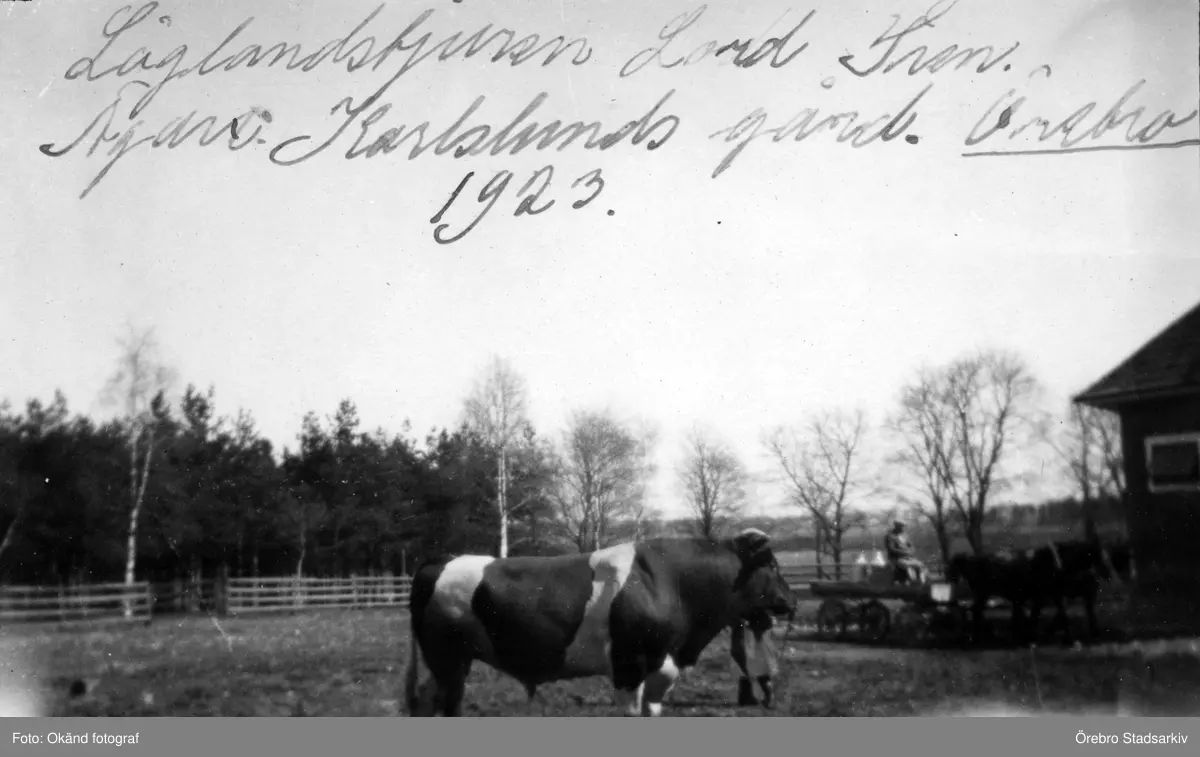 Låglandstjuren Lord Sven.
Ägare: Karlslunds gård. Örebro
1923.
Foto: Okänd fotograf
Örebro Stadsarkiv